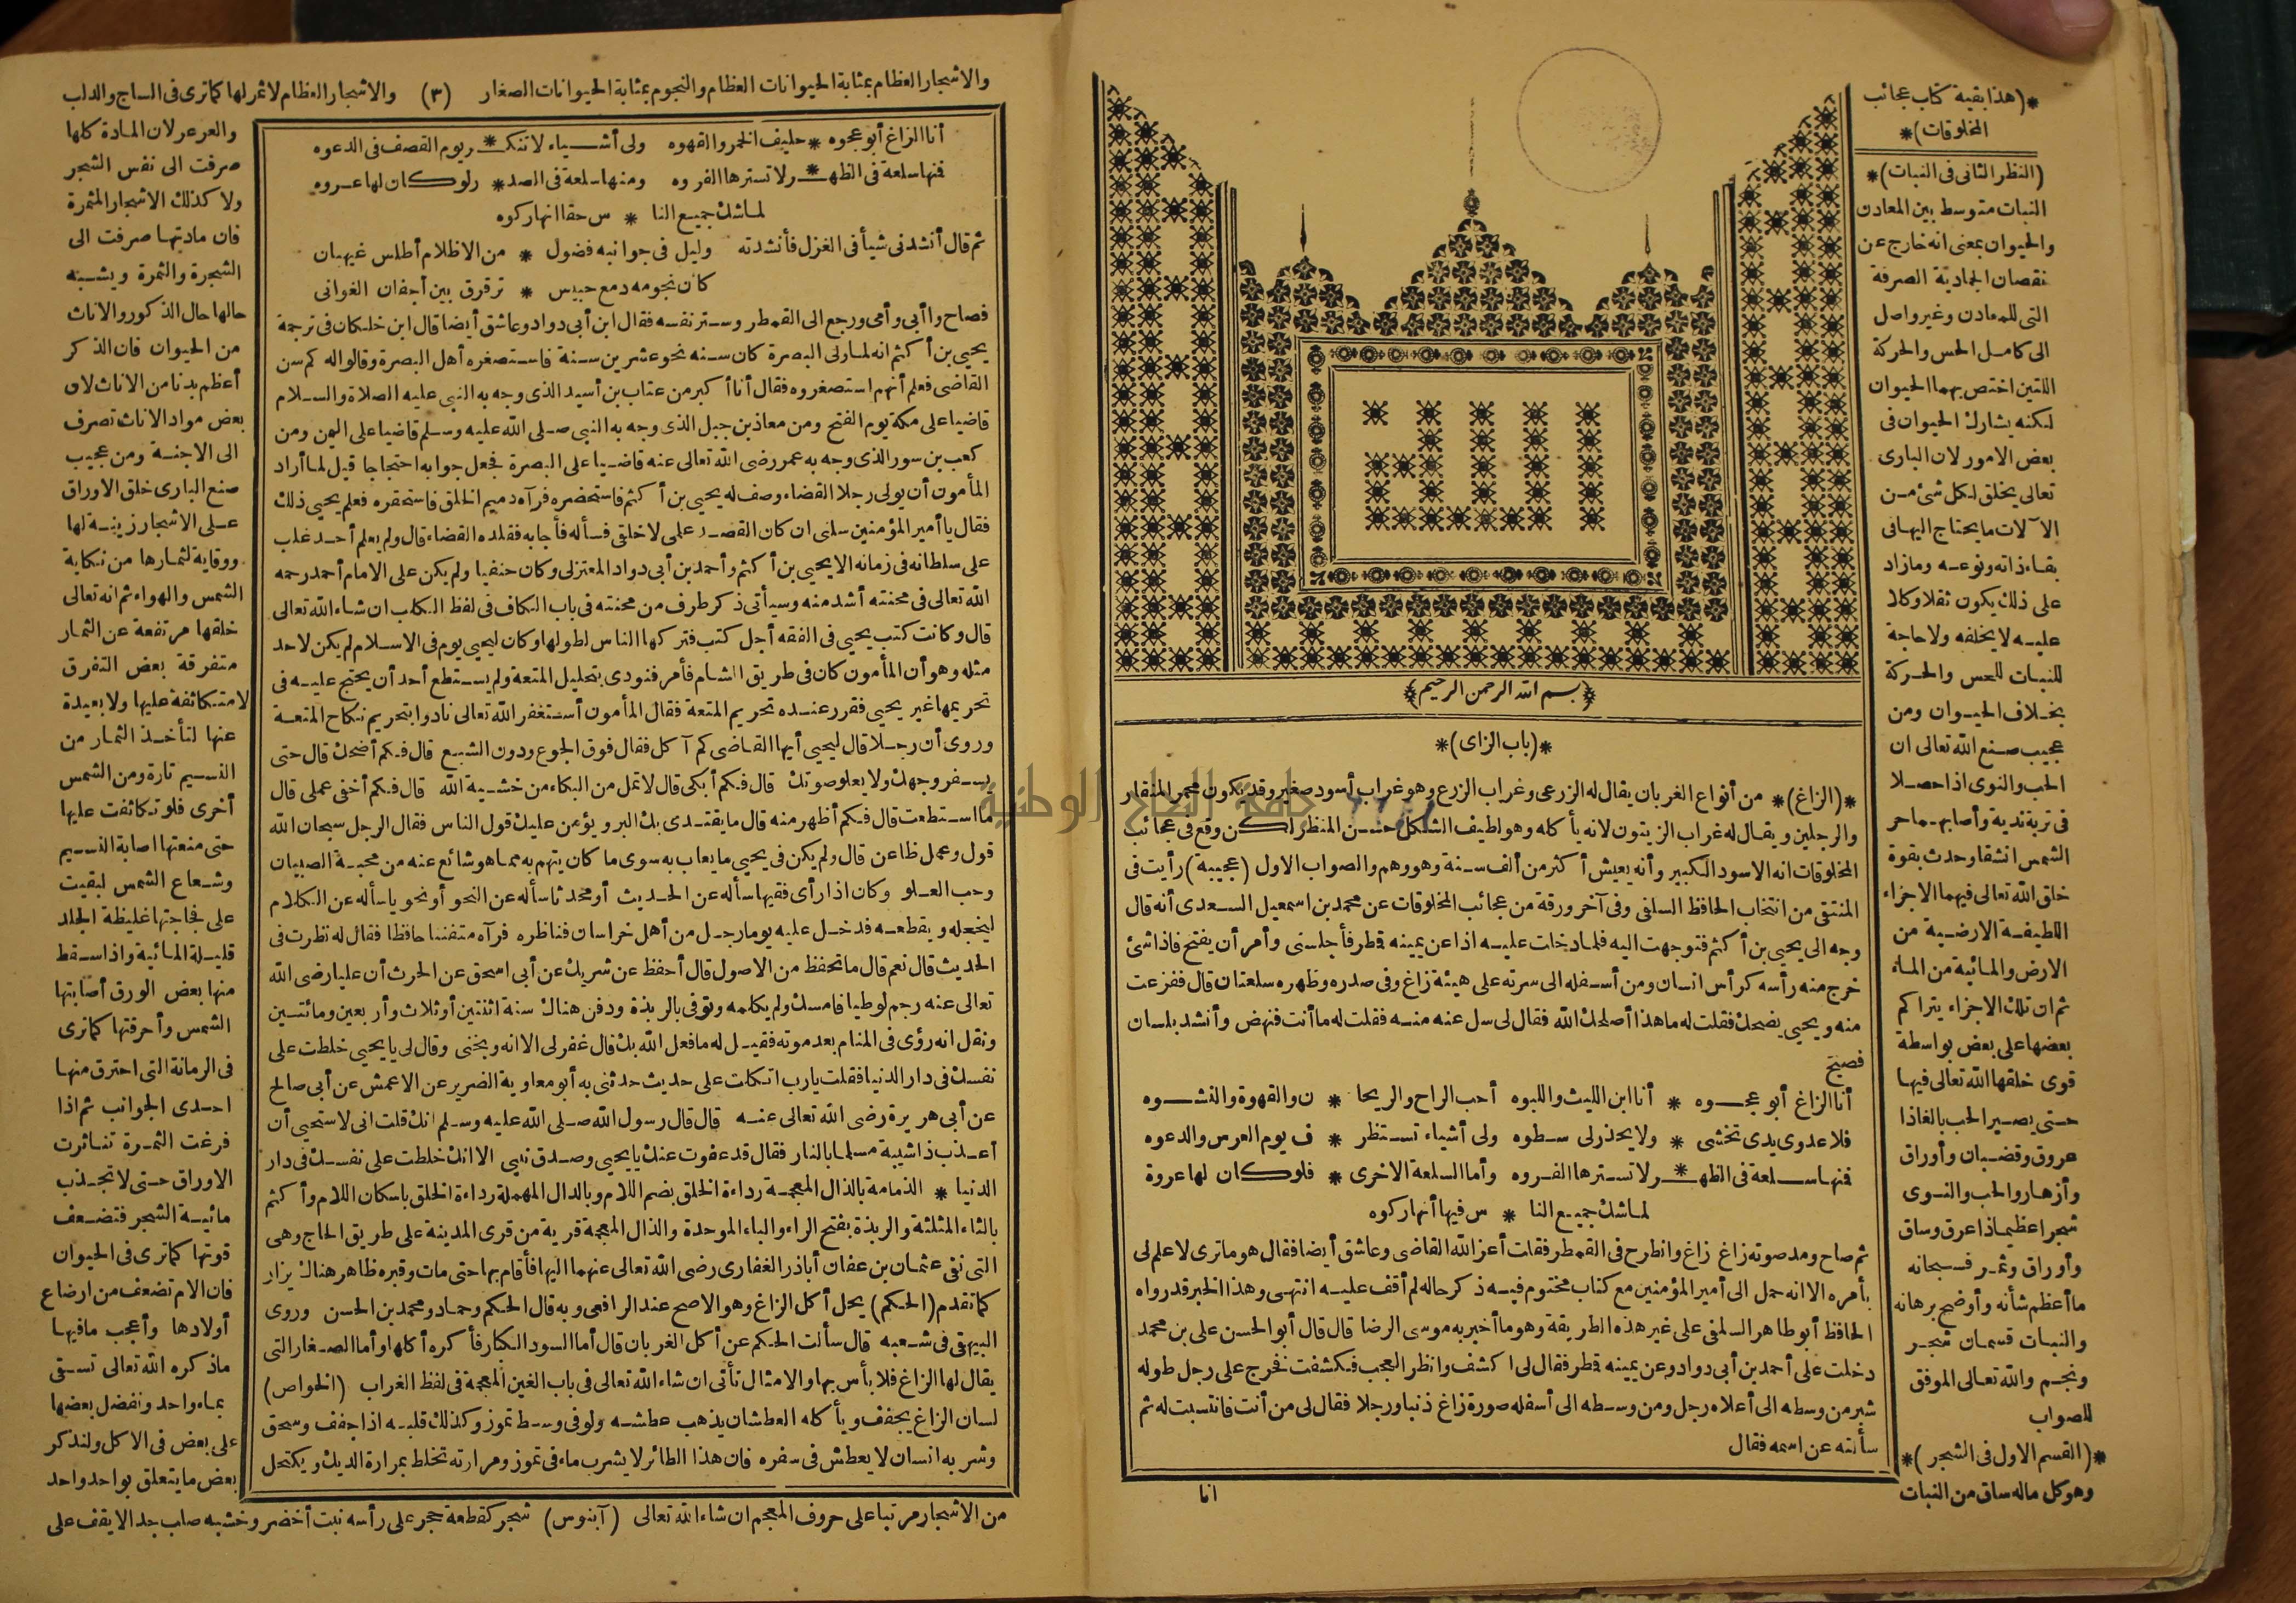 *(هذا بقية كتاب عجائب
المخلوقات)*
(النظر الثانى فى النبات)*
النبات متوسط بين المعادن
والحيوان بمعنى انه خارج عن
نقصان الجمادية الصرفة
التى للمعادن وغير واصل
الى كامل الحس والحركة
اللتين اختص بهما الحيوان
لكنه يشارك الحيوان فى
بعض الامور لان البارى
تعالى يخلق لكل شئ من
الآلات ما يحتاج اليها فى
بقاء ذاته ونوعه وما زاد
على ذلك يكون ثقلا وكلا
عليه لا يخلقه ولا حاجة
للنبات للحس والحركة
بخلاف الحيوان ومن
عجيب صنع الله تعالى ان
الحب والنوى اذا حصلا
فى تربة ندية وأصابهما حر
الشمس انشقا وحدث بقوة
خلق الله تعالى فيهما الاجزاء
اللطيفة الارضية من
الارض والمائية من الماء
ثم ان تلك الاجزاء يتراكم
بعضها على بعض بواسطة
قوى خلقها الله تعالى فيها
حتى يصير الحب بالغاذا
عروق وقضبان وأوراق
وأزهار والحب والنوى
شجرا عظيما ذا عرق وساق
وأوراق وثمر فسبحانه
ما أعظم شأنه وأوضح برهانه
والنبات قسمان شجر
ونجم والله تعالى الموفق
للصواب
*(القسم الاول فى الشجر)*
وهو كل ماله ساق من النبات
الله
﴿بسم الله الرحمن الرحيم﴾
*(باب الزاى)*
*(الزاغ)* من أنواع الغربان يقال له الزرعى وغراب الزرع وهو غراب أسود صغير وقد يكون محمر المنقار
والرجلين ويقال له غراب الزيتون لانه يأكله وهو لطيف الشكل حسن المنظر لكن وقع فى عجائب
المخلوقات انه الاسود الكبير وأنه يعيش أكثر من ألف سنة وهو وهم والصواب الاول (عجيبة) رأيت فى
المنتقى من انتخاب الحافظ السلفى وفى آخر ورقة من عجائب المخلوقات عن محمد بن اسمعيل السعدى أنه قال
وجه الى يحيى بن أكثم فتوجهت اليه فلما دخلت عليه اذا عن يمينه قطر فأجلسنى وأمر أن يفتح فاذا شئ
خرج منه رأسه كرأس انسان ومن أسفله الى سرته على هيئة زاغ وفى صدره وظهره سلعتان قال ففزعت
منه ويحيى يضحك فقلت له ما هذا أصلحك الله فقال لى سل عنه منه فقلت له ما أنت فنهض وأنشد بلسان
فصيح
أنا الزاغ أبو عجوه * أنا ابن الليث واللبوه أحب الراح والريحا * ن والقهوة والنشوه
فلا عدوى يدى تخشى * ولا يحذر لى سطوه ولى أشياء تستظر * ف يوم العرس والدعوه
فنها سلعة فى الظهـ * ر لا تسترها الفروه وأما السلعة الاخرى * فلو كان لها عروة
لما شك جميع النا * س فيها أنها ركوه
ثم صاح ومد صوته زاغ زاغ وانطرح فى القمطر فقلت أعز الله القاضى وعاشق أيضا فقال هو ما ترى لا علم لى
بأمره الا انه حمل الى أمير المؤمنين مع كتاب مختوم فيه ذكر حاله لم أقف عليه انتهى وهذا الخبر قد رواه
الحافظ أبو طاهر السلفى على غير هذه الطريقة وهو ما أخبر به موسى الرضا قال قال أبو الحسن على بن محمد
دخلت على أحمد بن أبى دواد وعن يمينه قطر فقال لى اكشف وانظر العجب فكشفت فخرج على رجل طوله
شبر من وسطه الى أعلاه رجل ومن وسطه الى أسفله صورة زاغ ذنبا ورجلا فقال لى من أنت فانتسبت له ثم
سألته عن اسمه فقال
انا
جامعة النجاح الوطنية
والاشجار العظام بمثابة الحيوانات العظام والنجوم بمثابة الحيوانات الصغار (٣) والاشجار العظام لا ثمر لها كما ترى فى الساج والدلب
والعرعر لان المادة كلها
صرفت الى نفس الشجر
ولا كذلك الاشجار المثمرة
فان مادتها صرفت الى
الشجرة والثمرة ويشبه
حالها حال الذكور والاناث
من الحيوان فان الذكر
أعظم بدنا من الاناث لان
بعض مواد الاناث تصرف
الى الاجنة ومن عجيب
صنع البارى خلق الاوراق
على الاشجار زينة لها
ووقاية لثمارها من نكاية
الشمس والهواء ثم انه تعالى
خلقها مرتفعة عن الثمار
متفرقة بعض التفرق
لا متكاثفة عليها ولا بعيدة
عنها لتأخذ الثمار من
النسيم تارة ومن الشمس
أخرى فلو تكاثفت عليها
حتى منعتها اصابة النسيم
وشعاع الشمس لبقيت
على فجاجتها غليظة الجلد
قليلة المائية واذا سقط
منها بعض الورق أصابتها
الشمس وأحرقتها كما ترى
فى الرمانة التى احترق منها
احدى الجوانب ثم اذا
فرغت الثمرة تناثرت
الاوراق حتى لا تجذب
مائية الشجر فتضعف
قوتها كما ترى فى الحيوان
فان الام تضعف من ارضاع
أولادها وأعجب ما فيها
ما ذكره الله تعالى تسقى
بماء واحد ونفضل بعضها
على بعض فى الاكل ولنذكر
بعض ما يتعلق بواحد واحد
من الاشجار مرتبا على حروف المعجم ان شاء الله تعالى (آبنوس) شجر كقطعة حجر على رأسه نبت أخضر وخشبه صلب جدا لا يقف على
أنا الزاغ أبو عجوه * حليف الخمر والقهوه ولى أشياء لا تنكـ * ر يوم القصف فى الدعوه
فنها سلعة فى الظهـ * ر لا تسترها الفروه ومنها سلعة فى الصد * ر لو كان لها عروه
لما شك جميع النا * س حقا انها ركوه
ثم قال أنشدنى شيأ فى الغزل فأنشدته وليل فى جوانبه فضول * من الاظلام أطلس غيهبان
كأن نجومه دمع حبيس * ترقرق بين أجفان الغوانى
فصاح وا أبى وأمى ورجع الى القمطر وستر نفسه فقال ابن أبى دواد وعاشق أيضا قال ابن خلكان فى ترجمة
يحيى بن أكثم انه لما ولى البصرة كان سنه نحو عشرين سنة فاستصغره أهل البصرة وقالوا له كم سن
القاضى فعلم أنهم استصغروه فقال أنا أكبر من عتاب بن أسيد الذى وجه به النبى عليه الصلاة والسلام
قاضيا على مكة يوم الفتح ومن معاذ بن جبل الذى وجه به النبى صلى الله عليه وسلم قاضيا على اليمن ومن
كعب بن سور الذى وجه به عمر رضى الله تعالى عنه قاضيا على البصرة فجعل جوابه احتجاجا قيل لما أراد
المأمون أن يولى رجلا القضاء وصف له يحيى بن أكثم فاستحضره فرآه دميم الخلق فاستحقره فعلم يحيى ذلك
فقال يا أمير المؤمنين سلنى ان كان القصد علمى لا خلقى فسأله فأجابه فقلده القضاء قال ولم يعلم أحد غلب
على سلطانه فى زمانه الا يحيى بن أكثم وأحمد بن أبى دواد المعتزلى وكان حنفيا ولم يكن على الامام أحمد رحمه
الله تعالى فى محنته أشد منه وسيأتى ذكر طرف من محنته فى باب الكاف فى لفظ الكلب ان شاء الله تعالى
قال وكانت كتب يحيى فى الفقه أجل كتب فتركها الناس لطولها وكان ليحيى يوم فى الاسلام لم يكن لاحد
مثله وهو أن المأمون كان فى طريق الشام فأمر فنودى بتحليل المتعة ولم يستطع أحد أن يحتج عليه فى
تحريمها غير يحيى فقرر عنده تحريم المتعة فقال المأمون أستغفر الله تعالى نادوا بتحريم نكاح المتعة
وروى أن رجلا قال ليحيى أيها القاضى كم آكل فقال فوق الجوع ودون الشبع قال فكم أضحك قال حتى
يسفر وجهك ولا يعلو صوتك قال فكم أبكى قال لا تمل من البكاء من خشية الله قال فكم أخفى عملى قال
ما استطعت قال فكم أظهر منه قال ما يقتدى بك البر ويؤمن عليك قول الناس فقال الرجل سبحان الله
قول وعمل ظاعن قال ولم يكن فى يحيى ما يعاب به سوى ما كان يتهم به مما هو شائع عنه من محبة الصبيان
وحب العلو وكان اذا رأى فقيها سأله عن الحديث أو محدثا سأله عن النحو أو نحويا سأله عن الكلام
ليخجله ويقطعه فدخل عليه يوما رجل من أهل خراسان فناظره فرآه متفننا حافظا فقال له نظرت فى
الحديث قال نعم قال ما تحفظ من الاصول قال أحفظ عن شريك عن أبى اسحق عن الحرث أن عليا رضى الله
تعالى عنه رجم لوطيا فامسك ولم يكلمه وتوفى بالربذة ودفن هناك سنة اثنتين أو ثلاث وأربعين ومائتين
ونقل انه رؤى فى المنام بعد موته فقيل له ما فعل الله بك قال غفر لى الا انه وبخنى وقال لى يا يحيى خلطت على
نفسك فى دار الدنيا فقلت يارب اتكلت على حديث حدثنى به أبو معاوية الضرير عن الاعمش عن أبى صالح
عن أبى هريرة رضى الله تعالى عنه قال قال رسول الله صلى الله عليه وسلم انك قلت انى لاستحيى أن
أعذب ذا شيبة مسلما بالنار فقال قد عفوت عنك يا يحيى وصدق نبيى الا انك خلطت على نفسك فى دار
الدنيا * الذمامة بالذال المعجمة رداءة الخلق بضم اللام وبالدال المهملة رداءة الخلق باسكان اللام وأكثم
بالثاء المثلثة والربذة بفتح الراء والباء الموحدة والذال المعجمة قرية من قرى المدينة على طريق الحاج وهى
التى نفى عثمان بن عفان أباذر الغفارى رضى الله تعالى عنهما اليها فأقام بها حتى مات وقبره ظاهر هناك يزار
كما تقدم (الحكم) يحل أكل الزاغ وهو الاصح عند الرافعى وبه قال الحكم وحماد ومحمد بن الحسن وروى
البيهقى فى شعبه قال سألت الحكم عن أكل الغربان قال أما السود الكبار فأكره أكلها وأما الصغار التى
يقال لها الزاغ فلا بأس بها والامثال تأتى ان شاء الله تعالى فى باب الغين المعجمة فى لفظ الغراب (الخواص)
لسان الزاغ يجفف ويأكله العطشان يذهب عطشه ولو فى وسط تموز وكذلك قلبه اذا جفف وسحق
وشربه انسان لا يعطش فى سفره فان هذا الطائر لا يشرب ماء فى تموز ومرارته تخلط بمرارة الديك ويكتحل